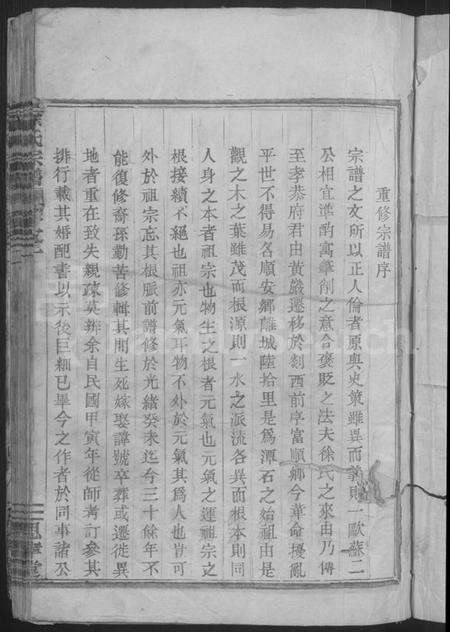 重修宗譜序
宗譜之文所以正人倫者原與史策雖異而義則一歐蘇二
公相宜準酌寓筆削之意合褒貶之法夫徐氏之來由乃傳
至孝恭府君由黃嚴遷移於剡西前序富順鄉今革命擾亂
平世不得易名順安鄉離城陸拾里是為潭石之始祖由是
觀之木之葉雖茂而根源則一水之派流各異而根本則同
人身之本者祖宗也物生之根者元氣也元氣之運祖宗之
根接續不絕也祖亦元氣耳物不外於元氣其為人也豈可
外於祖宗忘其根脈前譜修於光緒癸未迄今三十餘年不
能復修裔孫勤苦修輯其間生死嫁娶諱號卒葬或遷徙異
地者重在致失親疎莫辨余自民國甲寅年從師考訂參其
排行載其婚配書以示後曰細已畢今之作者於同事諸公
氏宗譜